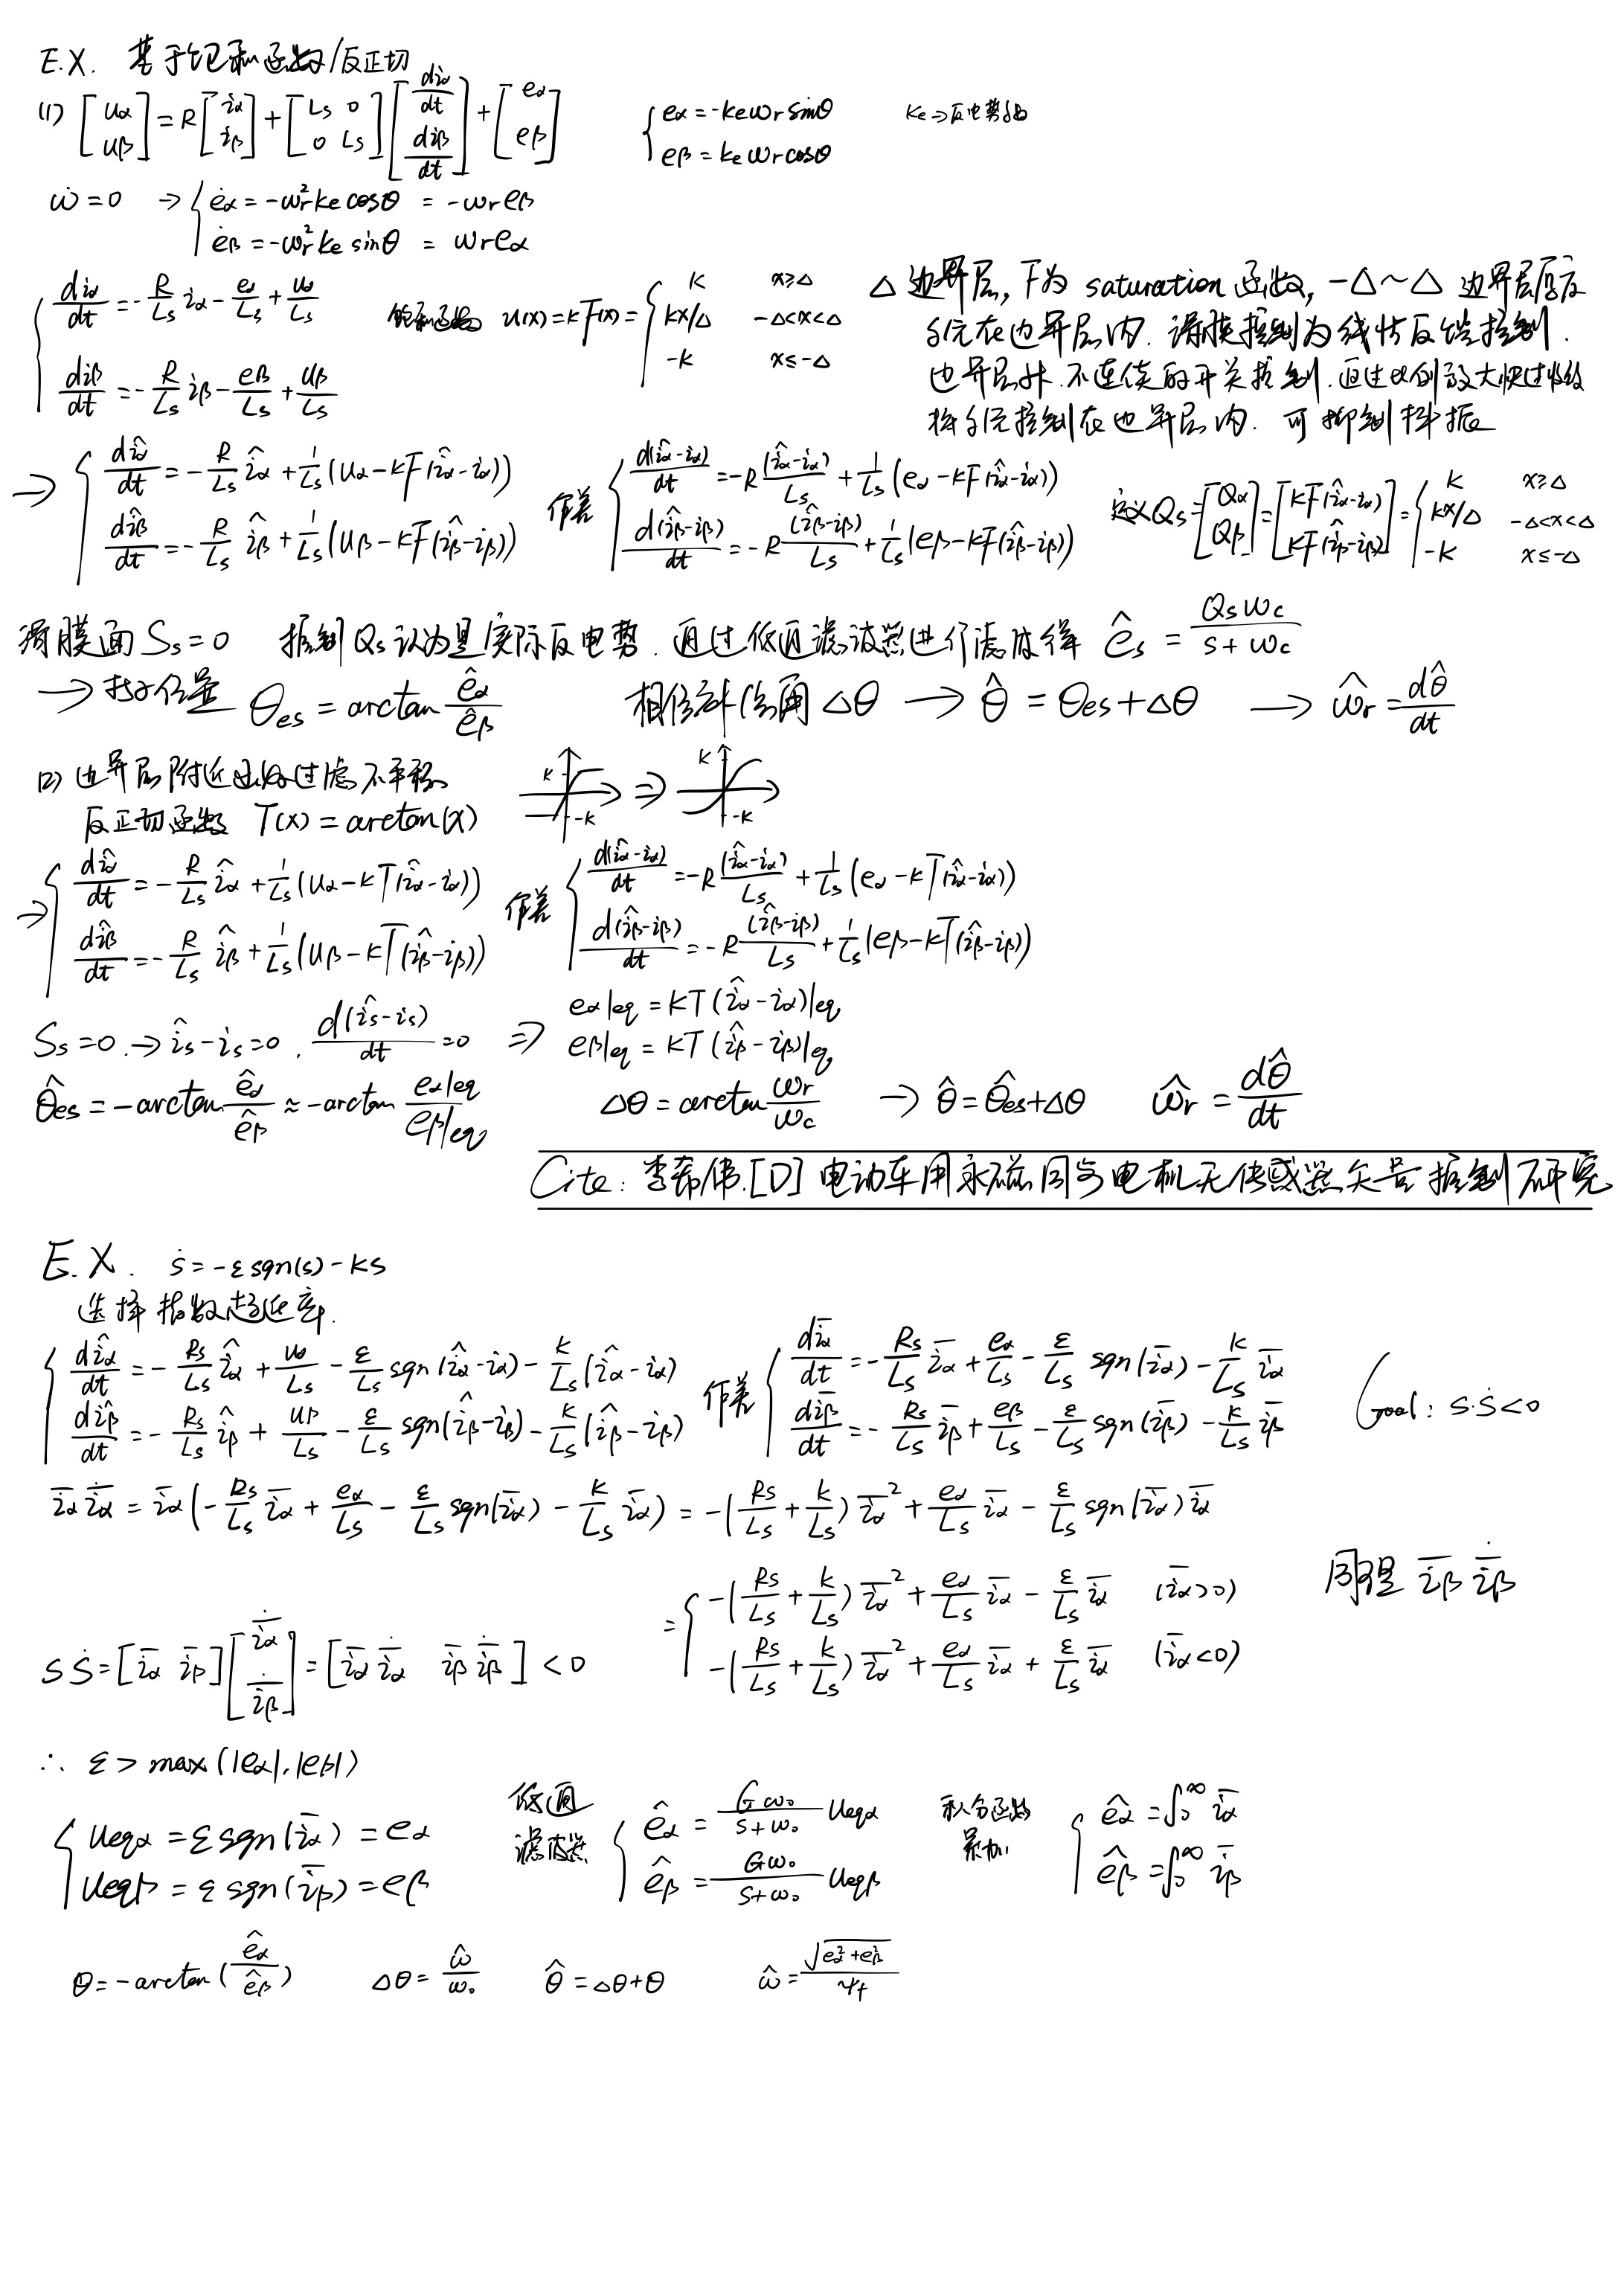 E.X. 基于饱和函数/反正切
(1) [uα; uβ] = R[iα; iβ] + [Ls 0; 0 Ls][diα/dt; diβ/dt] + [eα; eβ] { eα = -keωr sinθ; eβ = keωr cosθ ke → 反电势系数
ω̇ = 0 → { ėα = -ωr²ke cosθ = -ωr eβ
ėβ = -ωr²ke sinθ = ωr eα
{ diα/dt = -R/Ls iα - eα/Ls + uα/Ls
diβ/dt = -R/Ls iβ - eβ/Ls + uβ/Ls
饱和函数 u(x) = kF(x) = { k x≥Δ; kx/Δ -Δ<x<Δ; -k x≤-Δ
Δ 边界层, F为 saturation 函数, -Δ~Δ 边界层厚度
系统在边界层内. 滑膜控制为线性反馈控制.
边界层外. 不连续的开关控制. 通过比例放大快速收敛
将系统控制在边界层内. 可抑制抖振
→ { dîα/dt = -R/Ls îα + 1/Ls(uα - kF(îα-iα))
dîβ/dt = -R/Ls îβ + 1/Ls(uβ - kF(îβ-iβ))
作差 { d(îα-iα)/dt = -R(îα-iα)/Ls + 1/Ls(eα - kF(îα-iα))
d(îβ-iβ)/dt = -R(îβ-iβ)/Ls + 1/Ls(eβ - kF(îβ-iβ))
定义 Qs = [Qα; Qβ] = [kF(îα-iα); kF(îβ-iβ)] = { k x≥Δ; kx/Δ -Δ<x<Δ; -k x≤-Δ
滑膜面 Ss=0 控制Qs认为是实际反电势. 通过低通滤波器进行滤波得 ês = Qsωc/(s+ωc)
→ 转子位置 θes = arctan êα/êβ 相位补偿角 Δθ → θ̂ = θes+Δθ → ω̂r = dθ̂/dt
(2) 边界层附近函数过滤不平稳 k -k ⇒ k -k
反正切函数 T(x) = arctan(x)
→ { dîα/dt = -R/Ls îα + 1/Ls(uα - kT(îα-iα))
dîβ/dt = -R/Ls îβ + 1/Ls(uβ - kT(îβ-iβ))
作差 { d(îα-iα)/dt = -R(îα-iα)/Ls + 1/Ls(eα - kT(îα-iα))
d(îβ-iβ)/dt = -R(îβ-iβ)/Ls + 1/Ls(eβ - kT(îβ-iβ))
Ss=0. → îs-is=0 . d(îs-is)/dt = 0 ⇒ eα|eq = kT(îα-iα)|eq
eβ|eq = kT(îβ-iβ)|eq
θ̂es = -arctan êα/êβ ≈ -arctan eα|eq/eβ|eq Δθ = arctan ωr/ωc → θ̂ = θ̂es+Δθ ω̂r = dθ̂/dt
Cite: 李希伟.[D] 电动车用永磁同步电机无传感器矢量控制研究
E.X. ṡ = -ε sgn(s) - ks
选择指数趋近率.
{ dîα/dt = -Rs/Ls îα + uα/Ls - ε/Ls sgn(îα-iα) - k/Ls(îα-iα)
dîβ/dt = -Rs/Ls îβ + uβ/Ls - ε/Ls sgn(îβ-iβ) - k/Ls(îβ-iβ)
作差 { dīα/dt = -Rs/Ls īα + eα/Ls - ε/Ls sgn(īα) - k/Ls īα
dīβ/dt = -Rs/Ls īβ + eβ/Ls - ε/Ls sgn(īβ) - k/Ls īβ
Goal: s·ṡ<0
īα īα̇ = īα(-Rs/Ls īα + eα/Ls - ε/Ls sgn(īα) - k/Ls īα) = -(Rs/Ls + k/Ls) īα² + eα/Ls īα - ε/Ls sgn(īα) īα
= { -(Rs/Ls + k/Ls) īα² + eα/Ls īα - ε/Ls īα (īα>0)
-(Rs/Ls + k/Ls) īα² + eα/Ls īα + ε/Ls īα (īα<0)
同理 īβ īβ̇
sṡ = [īα īβ][īα̇; īβ̇] = [īα īα̇ īβ īβ̇] < 0
∴ ε > max(|eα|,|eβ|)
{ ueqα = ε sgn(īα) = eα
ueqβ = ε sgn(īβ) = eβ
低通
滤波器
{ êα = Gω₀/(s+ω₀) ueqα
êβ = Gω₀/(s+ω₀) ueqβ
积分函数
累加
{ êα = ∫₀^∞ īα
êβ = ∫₀^∞ īβ
θ = -arctan(êα/êβ) Δθ = ω̂/ω₀ θ̂ = Δθ+θ ω̂ = √(eα²+eβ²)/ψf